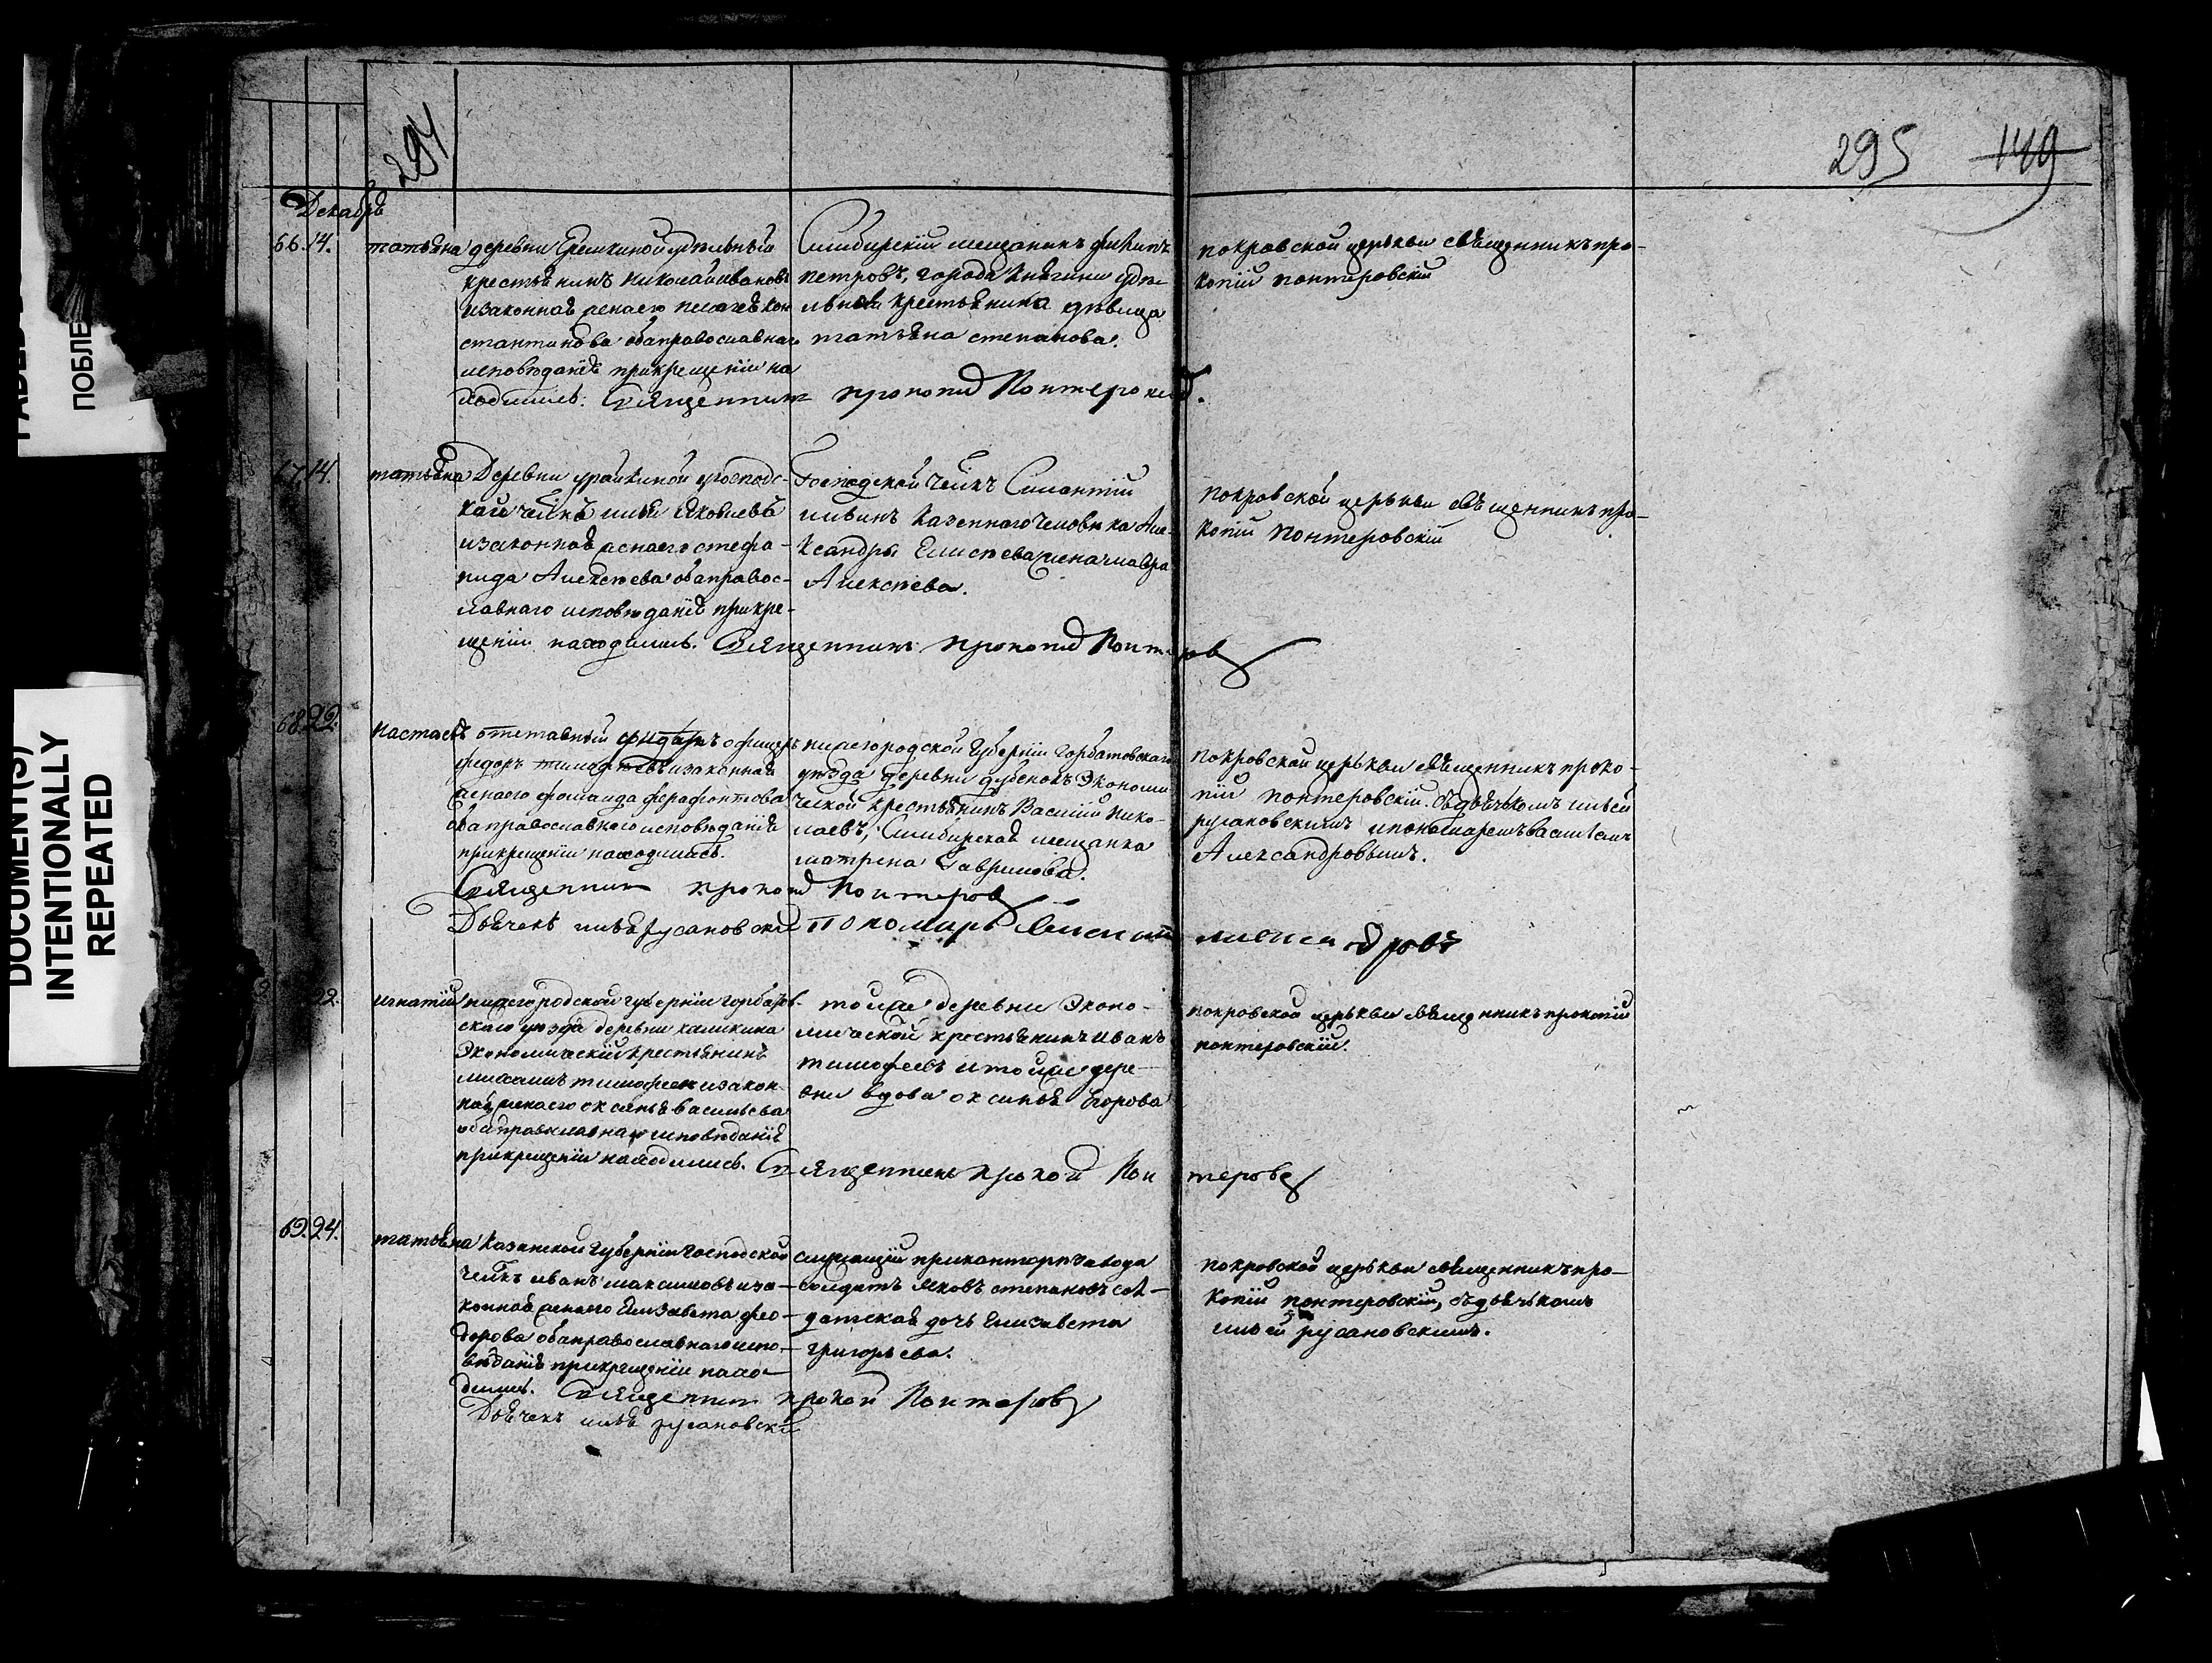 294
295 149
Декабрь
66. 14. татьяна деревни Еремкиной удѣльный
крестьянинъ Николай ивановъ
изаконная женаего пелагея кон
стантинова обаправославнаго
исповѣданія прикрещеніи на
ходились. Священникъ прокопий Понтеровский.
Симбирский мещанинъ филипъ
петровъ, города Княгини удѣ
льнаго крестьянина дѣвица
татьяна степанова.
покровской церькви священникъ про-
копій понтеровскій
67. 14. татьяна Деревни урайкиной господс-
кай челкъ илья яковлевъ
изаконная женаего стефа-
нида Алексѣева обаправос-
лавнаго исповѣданія прикре-
щеніи находились. Священникъ прокопий Понтеровъ
Господской челкъ Силантий
казеннаго человека Але-
ксандры Елисѣева женамавра
Алексѣева.
покровской церькви священникъ про-
копій Понтеровскій
68. 22. настасья отставный офицеръ
федоръ тимофѣевъ изаконная
женаего фомаида ферафонтова
оба православнаго исповѣданія
прикрещеніи находились.
Священникъ прокопий Понтеровъ
Дьячекъ илья русановский Пономарь Василий александровъ
нижегородской губерніи Горбатовскаго
уѣзда деревни дубенокъ Экономи
ческой крестьянинъ Василий Нико-
лаевъ, Симбирская мещанка
матрена Гаврилова.
покровской церькви священникъ проко-
пій понтеровскій. съдьячькомъ ильей
русановскимъ ипономаремъ василіемъ
Александровымъ.
22. игнатій нижегородской губерніи горбатов-
скаго уѣзда деревни каликина
Экономический крестьянинъ
михаилъ тимофеевъ изакон-
ная женаего оксинья васильева
оба православнаго исповѣданія
прикрещеніи находились. Священникъ прокопий Понтеровъ
тойже деревни Эконо-
мической крестьянинъ иванъ
тимофеевъ итойже дере-
вни вдова оксинья Егорова
покровской церькви священникъ прокопій
понтеровскій.
69. 24. татьяна Казанской губерніи господской
челкъ иванъ максимовъ иза-
конная женаего Елизавета фео-
дорова обаправославнагоиспо-
вѣданія прикрещеніи нахо-
дились. Священникъ прокопий Понтеровъ
Дьячекъ илья русановский
служащій приконторѣ завода
солдатъ яковъ степановъ сол-
датская дочь Елизавета
григорьева.
покровской церькви священникъ про-
копій понтеровскій, съдьячькомъ
ильей русановскимъ.
ПОБЛЕ
DOCUMENT(S)
INTENTIONALLY
REPEATED